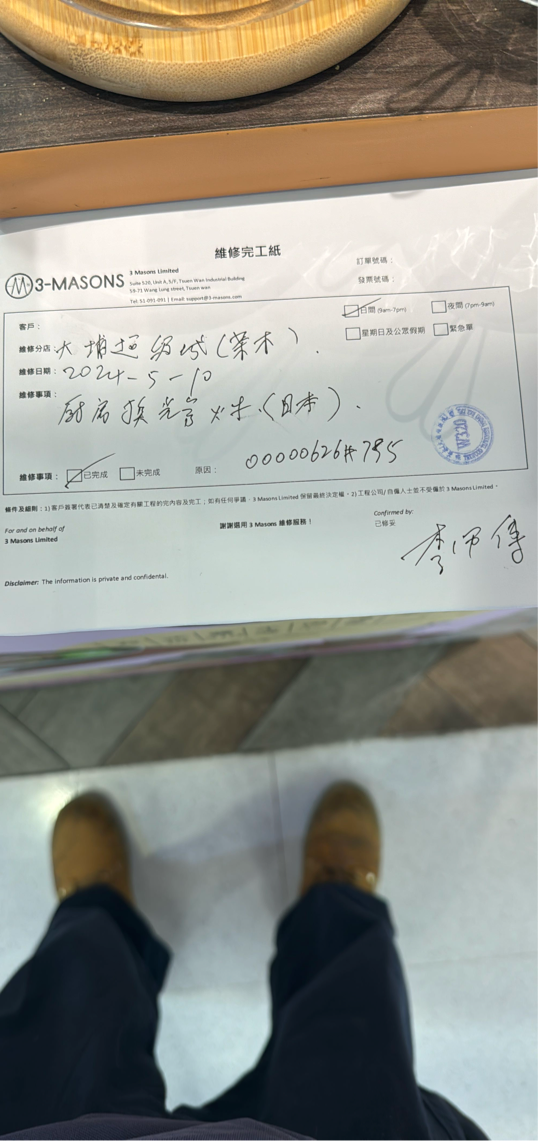 維修完工紙
訂單號碼：
發票號碼：
3-MASONS
3 Masons Limited
Suite 520, Unit A, 5/F, Tsuen Wan Industrial Building
59-71 Wang Lung street, Tsuen wan
Tel: 51-091-091 | Email: support@3-masons.com
客戶：
日間 (9am-7pm) 夜間 (7pm-9am)
星期日及公眾假期 緊急單
維修分店：大埔超級城(
維修日期：2024-5-10
維修事項：廚房換光管(日本).
維修事項： 已完成 未完成 原因： 00000626#795
條件及細則：1) 客戶簽署代表已清楚及確定有關工程的完內容及完工；如有任何爭議，3 Masons Limited 保留最終決定權。2) 工程公司/自僱人士並不受僱於 3 Masons Limited。
For and on behalf of
3 Masons Limited
謝謝選用 3 Masons 維修服務！
Confirmed by:
已修妥
李師傅
Disclaimer: The information is private and confidental.